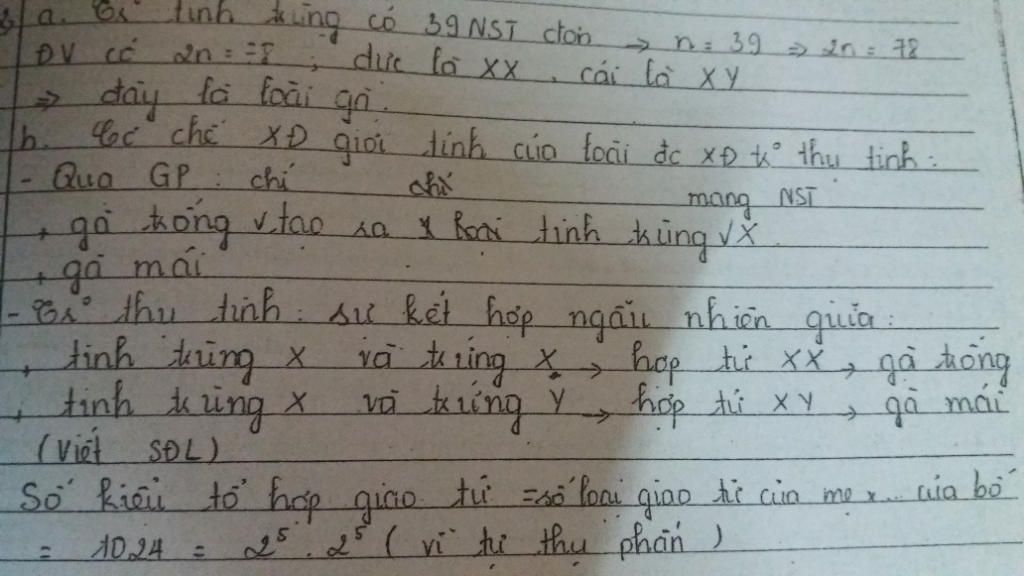 a. Tr° tinh trùng có 39 NST đơn → n = 39 ⇒ 2n = 78
ĐV có 2n = 78, đực là XX, cái là XY
⇒ đây là loài gà.
b. Cơ chế XĐ giới tính của loài đc XĐ tr° thụ tinh:
- Qua GP: chỉ chỉ mang NST
+ gà trống √ tạo ra 1 loại tinh trùng √ X
+ gà mái
- Tr° thụ tinh: sự kết hợp ngẫu nhiên giữa:
+ tinh trùng X và trứng X → hợp tử XX, gà trống
+ tinh trùng X và trứng Y → hợp tử XY, gà mái
(Viết SĐL)
Số kiểu tổ hợp giao tử = số loại giao tử của mẹ x... của bố
= 1024 = 2⁵ . 2⁵ (vì tự thụ phấn)